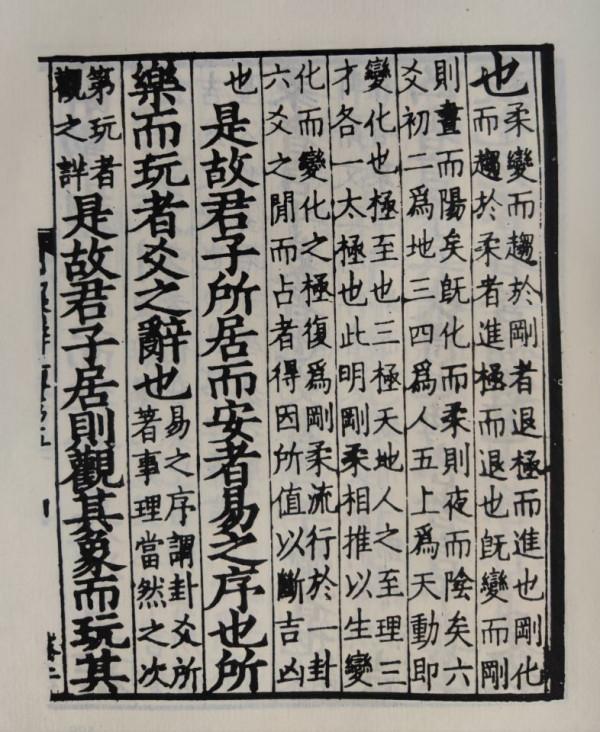 也
柔變而趨於剛者退極而進也剛化
而趨於柔者進極而退也旣變而剛
則晝而陽矣旣化而柔則夜而陰矣六
爻初二爲地三四爲人五上爲天動即
變化也極至也三極天地人之至理三
才各一太極也此明剛柔相推以生變
化而變化之極復爲剛柔流行於一卦
六爻之閒而占者得因所值以斷吉凶
也
是故君子所居而安者易之序也所
樂而玩者爻之辭也
易之序謂卦爻所
著事理當然之次
第玩者
觀之詳
是故君子居則觀其象而玩其